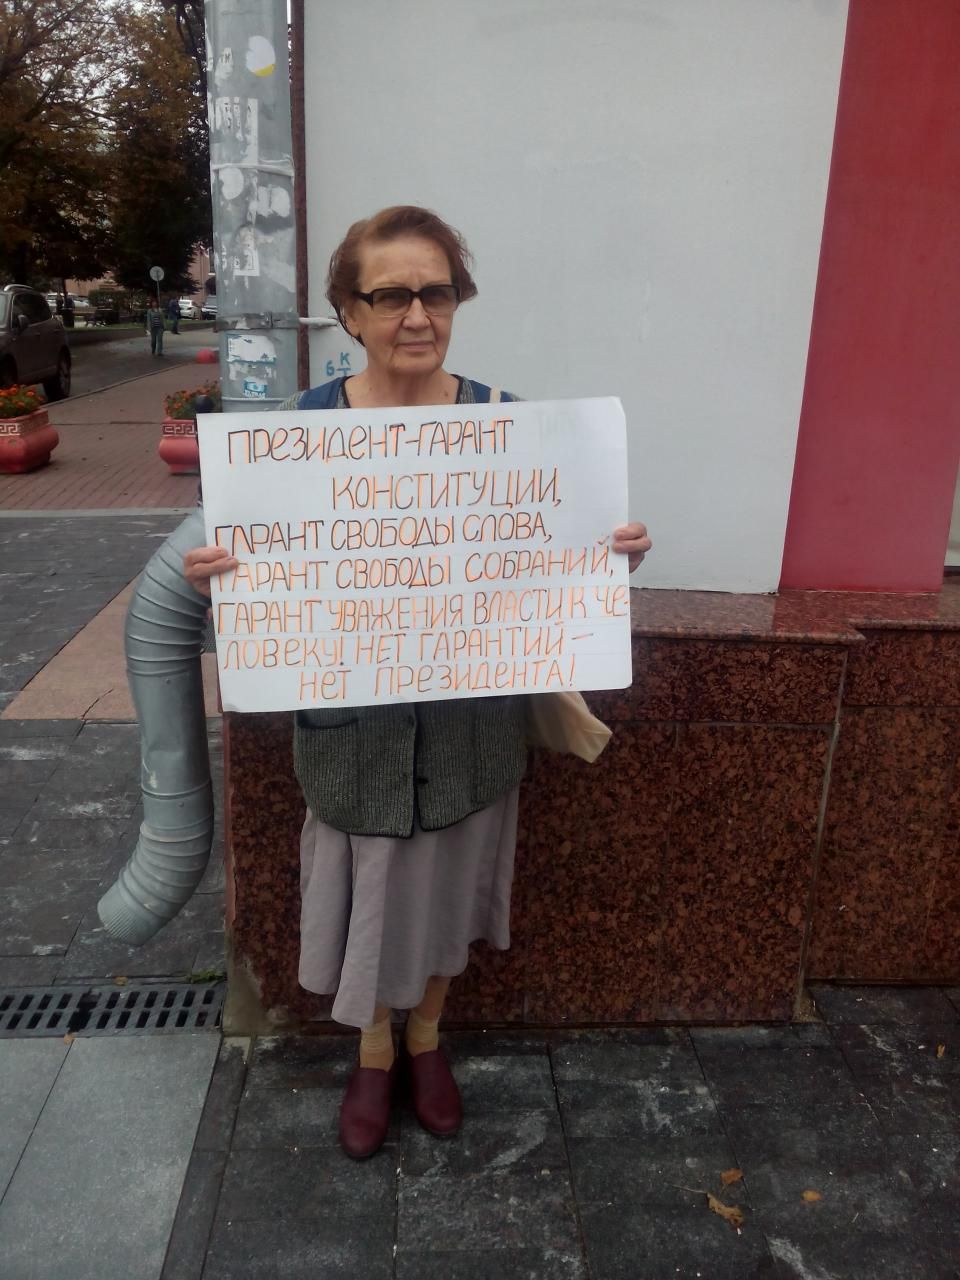 ПРЕЗИДЕНТ-ГАРАНТ
КОНСТИТУЦИИ,
ГАРАНТ СВОБОДЫ СЛОВА,
ГАРАНТ СВОБОДЫ СОБРАНИЙ,
ГАРАНТ УВАЖЕНИЯ ВЛАСТИ К ЧЕ-
ЛОВЕКУ! НЕТ ГАРАНТИЙ –
НЕТ ПРЕЗИДЕНТА!
6 К